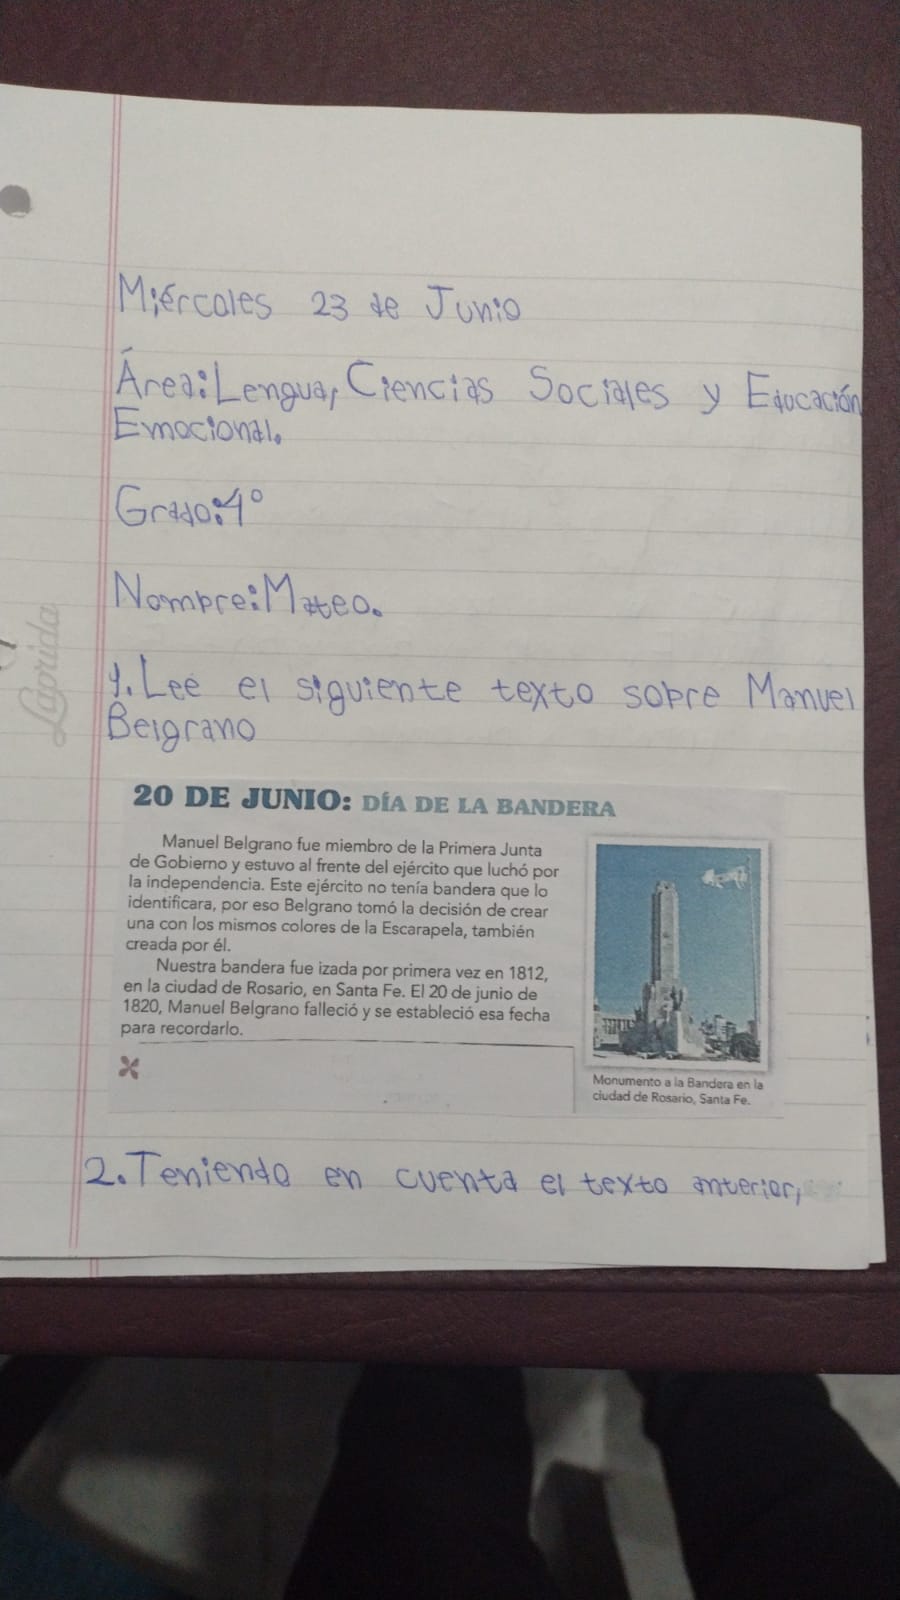 Miércoles 23 de Junio
Área: Lengua, Ciencias Sociales y Educación
Emocional.
Grado: 4°
Nombre: Mateo.
Laprida
1. Lee el siguiente texto sobre Manuel
Belgrano
20 DE JUNIO: DÍA DE LA BANDERA
Manuel Belgrano fue miembro de la Primera Junta
de Gobierno y estuvo al frente del ejército que luchó por
la independencia. Este ejército no tenía bandera que lo
identificara, por eso Belgrano tomó la decisión de crear
una con los mismos colores de la Escarapela, también
creada por él.
Nuestra bandera fue izada por primera vez en 1812,
en la ciudad de Rosario, en Santa Fe. El 20 de junio de
1820, Manuel Belgrano falleció y se estableció esa fecha
para recordarlo.
Monumento a la Bandera en la
ciudad de Rosario, Santa Fe.
2. Teniendo en cuenta el texto anterior,